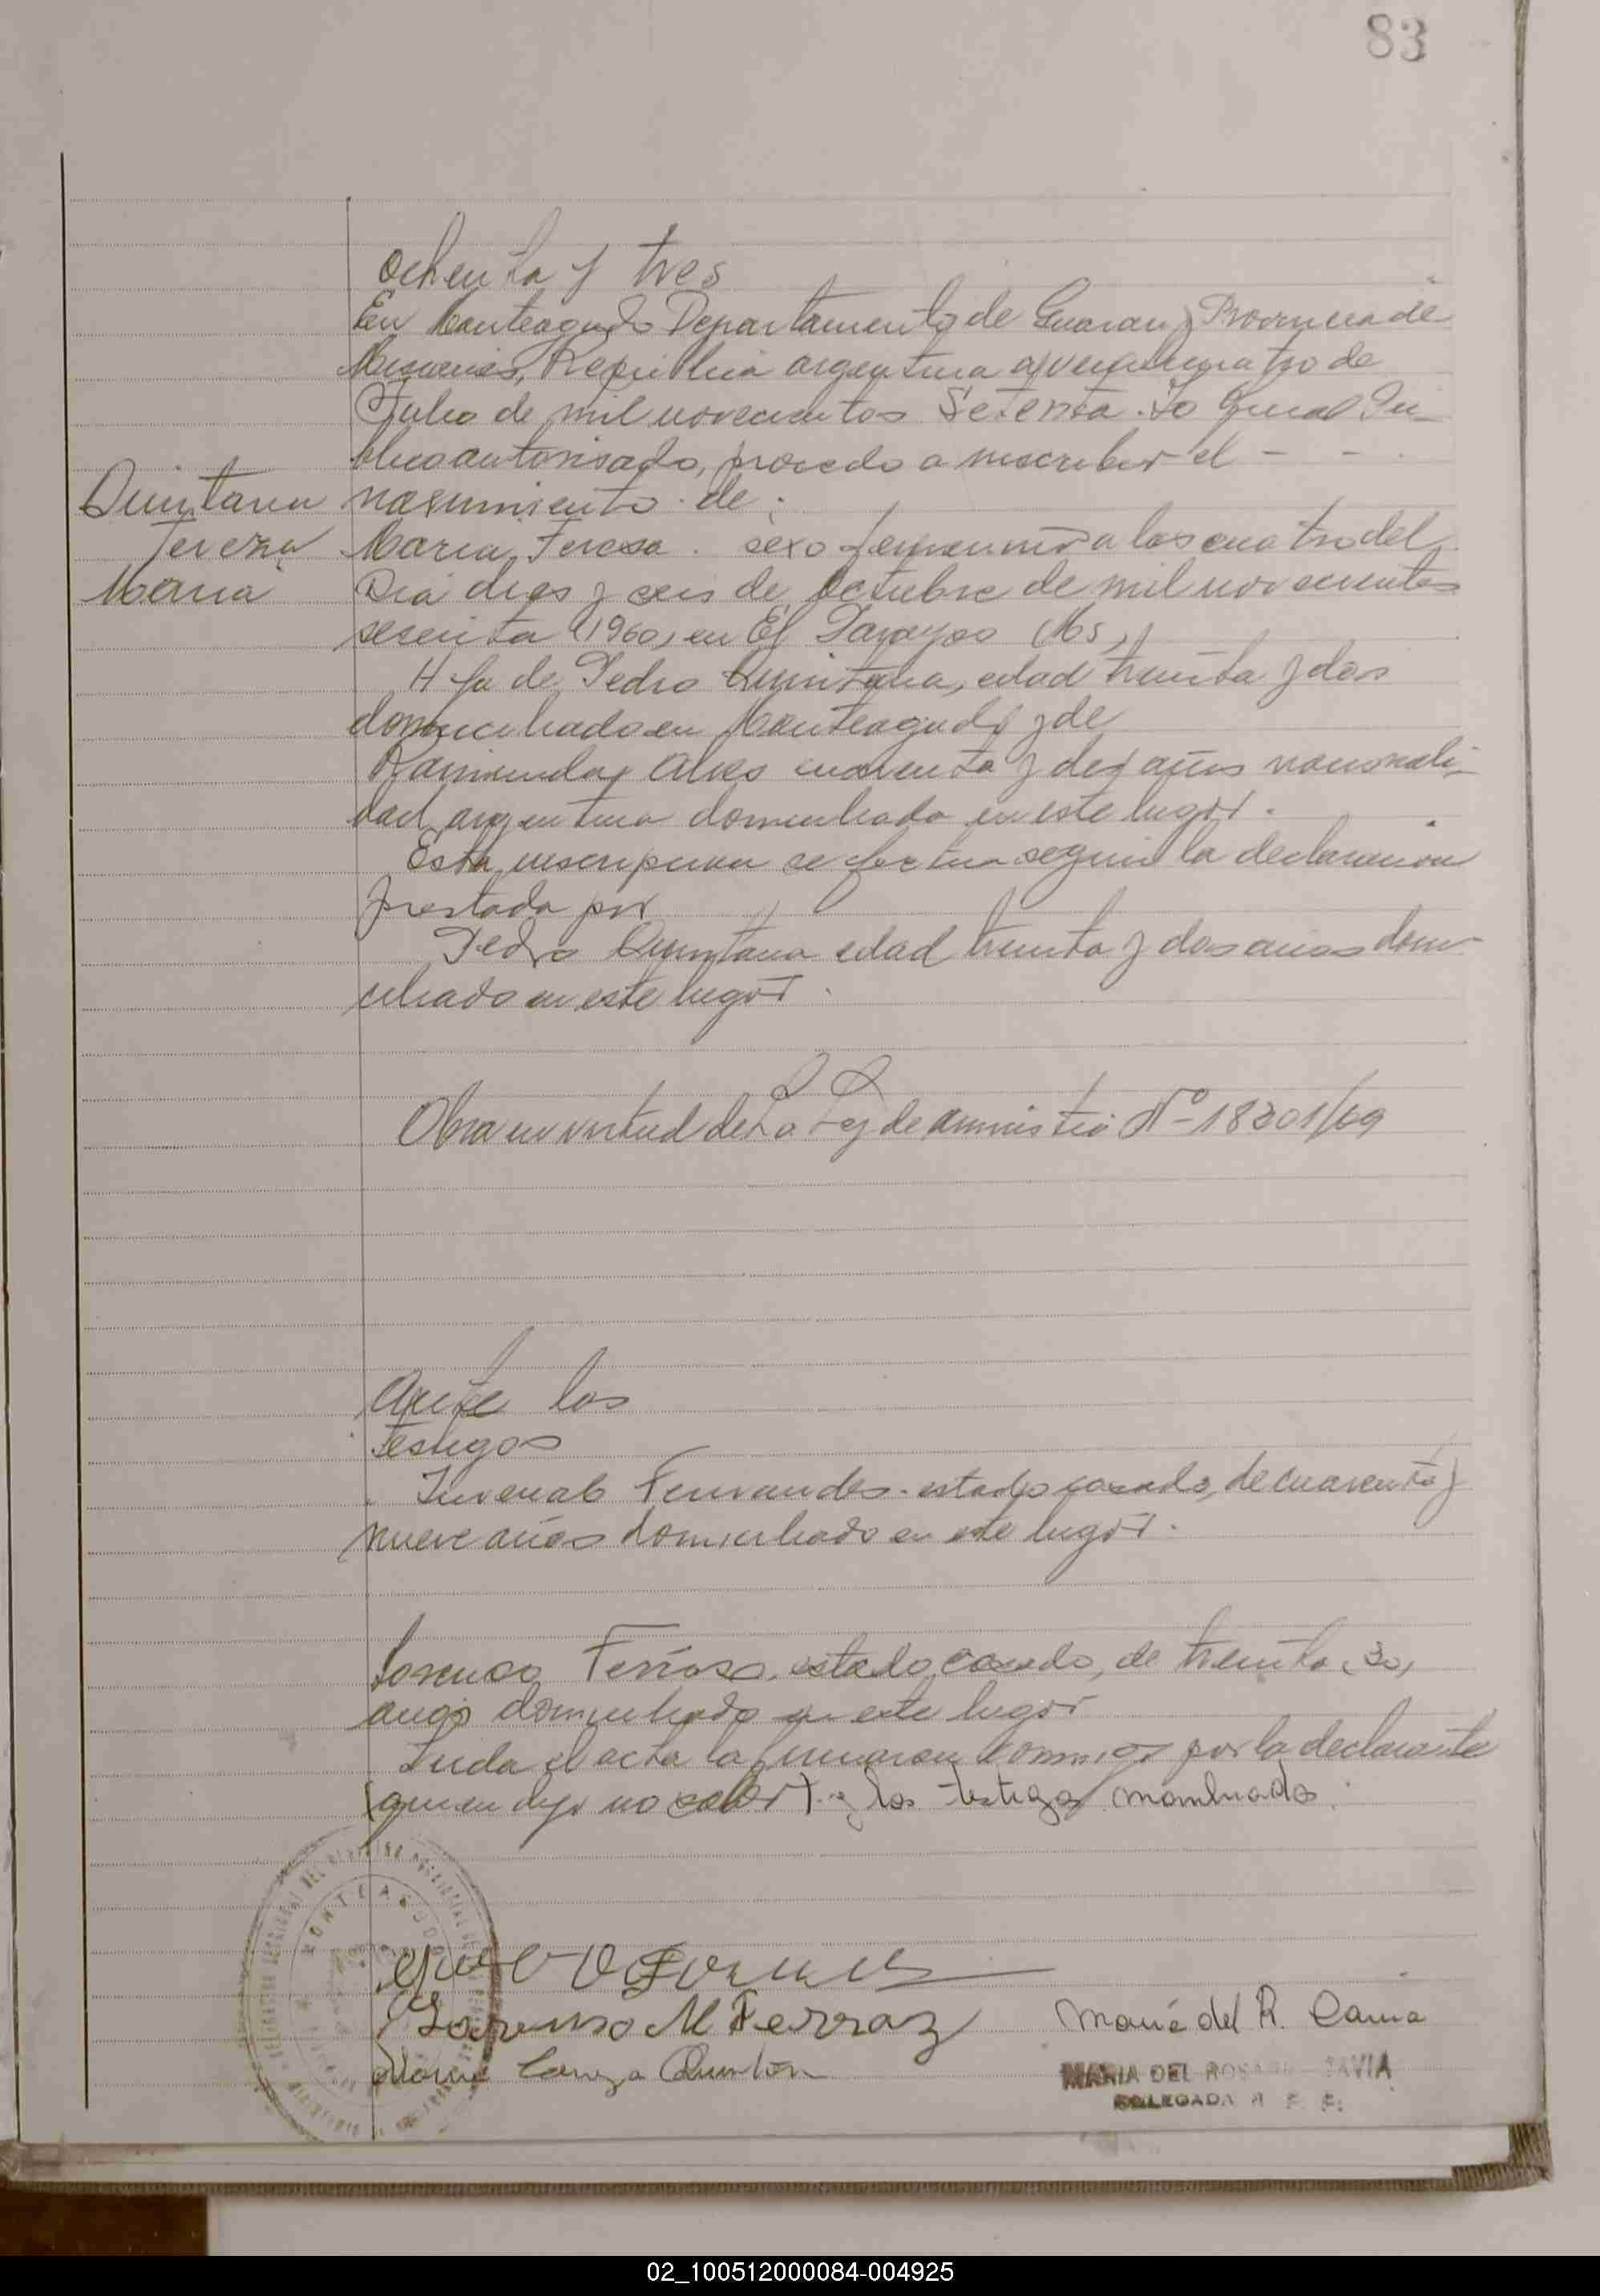 83
Ochenta y tres
En Monteagudo Departamento de Guarani Provincia de
Misiones, Republica argentina a veinticuatro de
Julio de mil novecientos Setenta. Yo
blico autorisado, procedo a inscribir el - -
Quintana
nasimiento de;
Tereza
Maria, Teresa. sexo femenino a las cuatro del
Maria
Dia dies y ceis de Octubre de mil novecientos
sesenta (1960) en El Parayso (Ms,)
Hja de Pedro Quintana, edad treinta y dos
domiciliado en Monteagudo y de
Raimunda Alves cuarenta y dos años nacionali-
dad argentina domiciliada en este lugar.
Esta inscripcion se efectua segun la declaracion
prestada por
Pedro Quintana edad treinta y dos anos domi-
ciliado en este lugar.
Obra en virtud de La Ley de amnistia Nº 18201/69
Ante los
testigos
Juvenal Fernandes. estado casado, de cuarenta y
nueve años domiciliado en este lugar.
Lorenso Ferraso, estado casado, de treinta (30)
anos domiciliado en este lugar
Leida el acta la firmaron conmigo por la declarante
(quien dijo no saber) y los testigos mombrados.
MONTEAGUDO
Lorenso M Ferraz
Maria del R. Cavia
Quintana
MARIA DEL ROSARIO CAVIA
DELEGADA R. P. P.
02_100512000084-004925